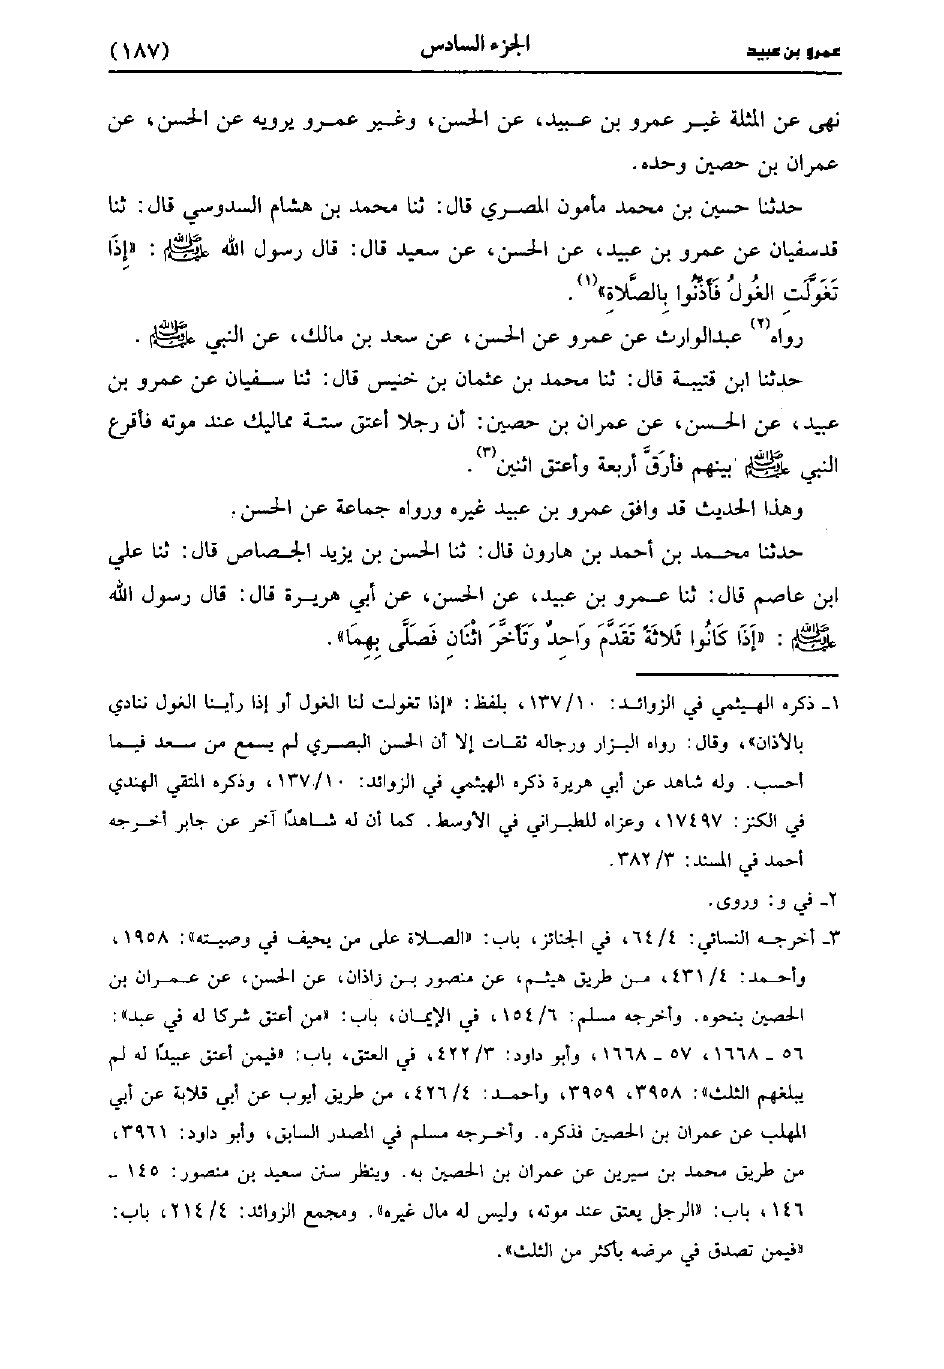 عمرو بن عبيد الجزء السادس (١٨٧)
نهى عن المثلة غير عمرو بن عبيد، عن الحسن، وغير عمرو يرويه عن الحسن، عن
عمران بن حصين وحده.
حدثنا حسين بن محمد مأمون المصري قال: ثنا محمد بن هشام السدوسي قال: ثنا
قدسفيان عن عمرو بن عبيد، عن الحسن، عن سعيد قال: قال رسول الله ﷺ : «إِذَا
تَغَوَّلَتِ الغُولُ فَأَذِّنُوا بِالصَّلَاةِ»(١).
رواه(٢) عبدالوارث عن عمرو عن الحسن، عن سعد بن مالك، عن النبي ﷺ .
حدثنا ابن قتيبة قال: ثنا محمد بن عثمان بن خنيس قال: ثنا سفيان عن عمرو بن
عبيد، عن الحسن، عن عمران بن حصين: أن رجلا أعتق ستة مماليك عند موته فأقرع
النبي ﷺ بينهم فأرَقَّ أربعة وأعتق اثنين(٣).
وهذا الحديث قد وافق عمرو بن عبيد غيره ورواه جماعة عن الحسن.
حدثنا محمد بن أحمد بن هارون قال: ثنا الحسن بن يزيد الجصاص قال: ثنا علي
ابن عاصم قال: ثنا عمرو بن عبيد، عن الحسن، عن أبي هريرة قال: قال رسول الله
ﷺ : «إِذَا كَانُوا ثَلَاثَةً تَقَدَّمَ وَاحِدٌ وَتَأَخَّرَ اثْنَانِ فَصَلَّى بِهِمَا».
١ـ ذكره الهيثمي في الزوائد: ١٣٧/١٠، بلفظ: «إذا تغولت لنا الغول أو إذا رأينا الغول ننادي
بالأذان»، وقال: رواه البزار ورجاله ثقات إلا أن الحسن البصري لم يسمع من سعد فيما
أحسب. وله شاهد عن أبي هريرة ذكره الهيثمي في الزوائد: ١٣٧/١٠، وذكره المتقي الهندي
في الكنز: ١٧٤٩٧، وعزاه للطبراني في الأوسط. كما أن له شاهدًا آخر عن جابر أخرجه
أحمد في المسند: ٣٨٢/٣.
٢ـ في و: وروى.
٣ـ أخرجه النسائي: ٦٤/٤، في الجنائز، باب: «الصلاة على من يحيف في وصيته»: ١٩٥٨،
وأحمد: ٤٣١/٤، من طريق هيثم، عن منصور بن زاذان، عن الحسن، عن عمران بن
الحصين بنحوه. وأخرجه مسلم: ١٥٤/٦، في الإيمان، باب: «من أعتق شركا له في عبد»:
٥٦ ـ ١٦٦٨، ٥٧ ـ ١٦٦٨، وأبو داود: ٤٢٢/٣، في العتق، باب: «فيمن أعتق عبيدًا له لم
يبلغهم الثلث»: ٣٩٥٨، ٣٩٥٩، وأحمد: ٤٢٦/٤، من طريق أيوب عن أبي قلابة عن أبي
المهلب عن عمران بن الحصين فذكره. وأخرجه مسلم في المصدر السابق، وأبو داود: ٣٩٦١،
من طريق محمد بن سيرين عن عمران بن الحصين به. وينظر سنن سعيد بن منصور: ١٤٥ ـ
١٤٦، باب: «الرجل يعتق عند موته، وليس له مال غيره». ومجمع الزوائد: ٢١٤/٤، باب:
«فيمن تصدق في مرضه بأكثر من الثلث».